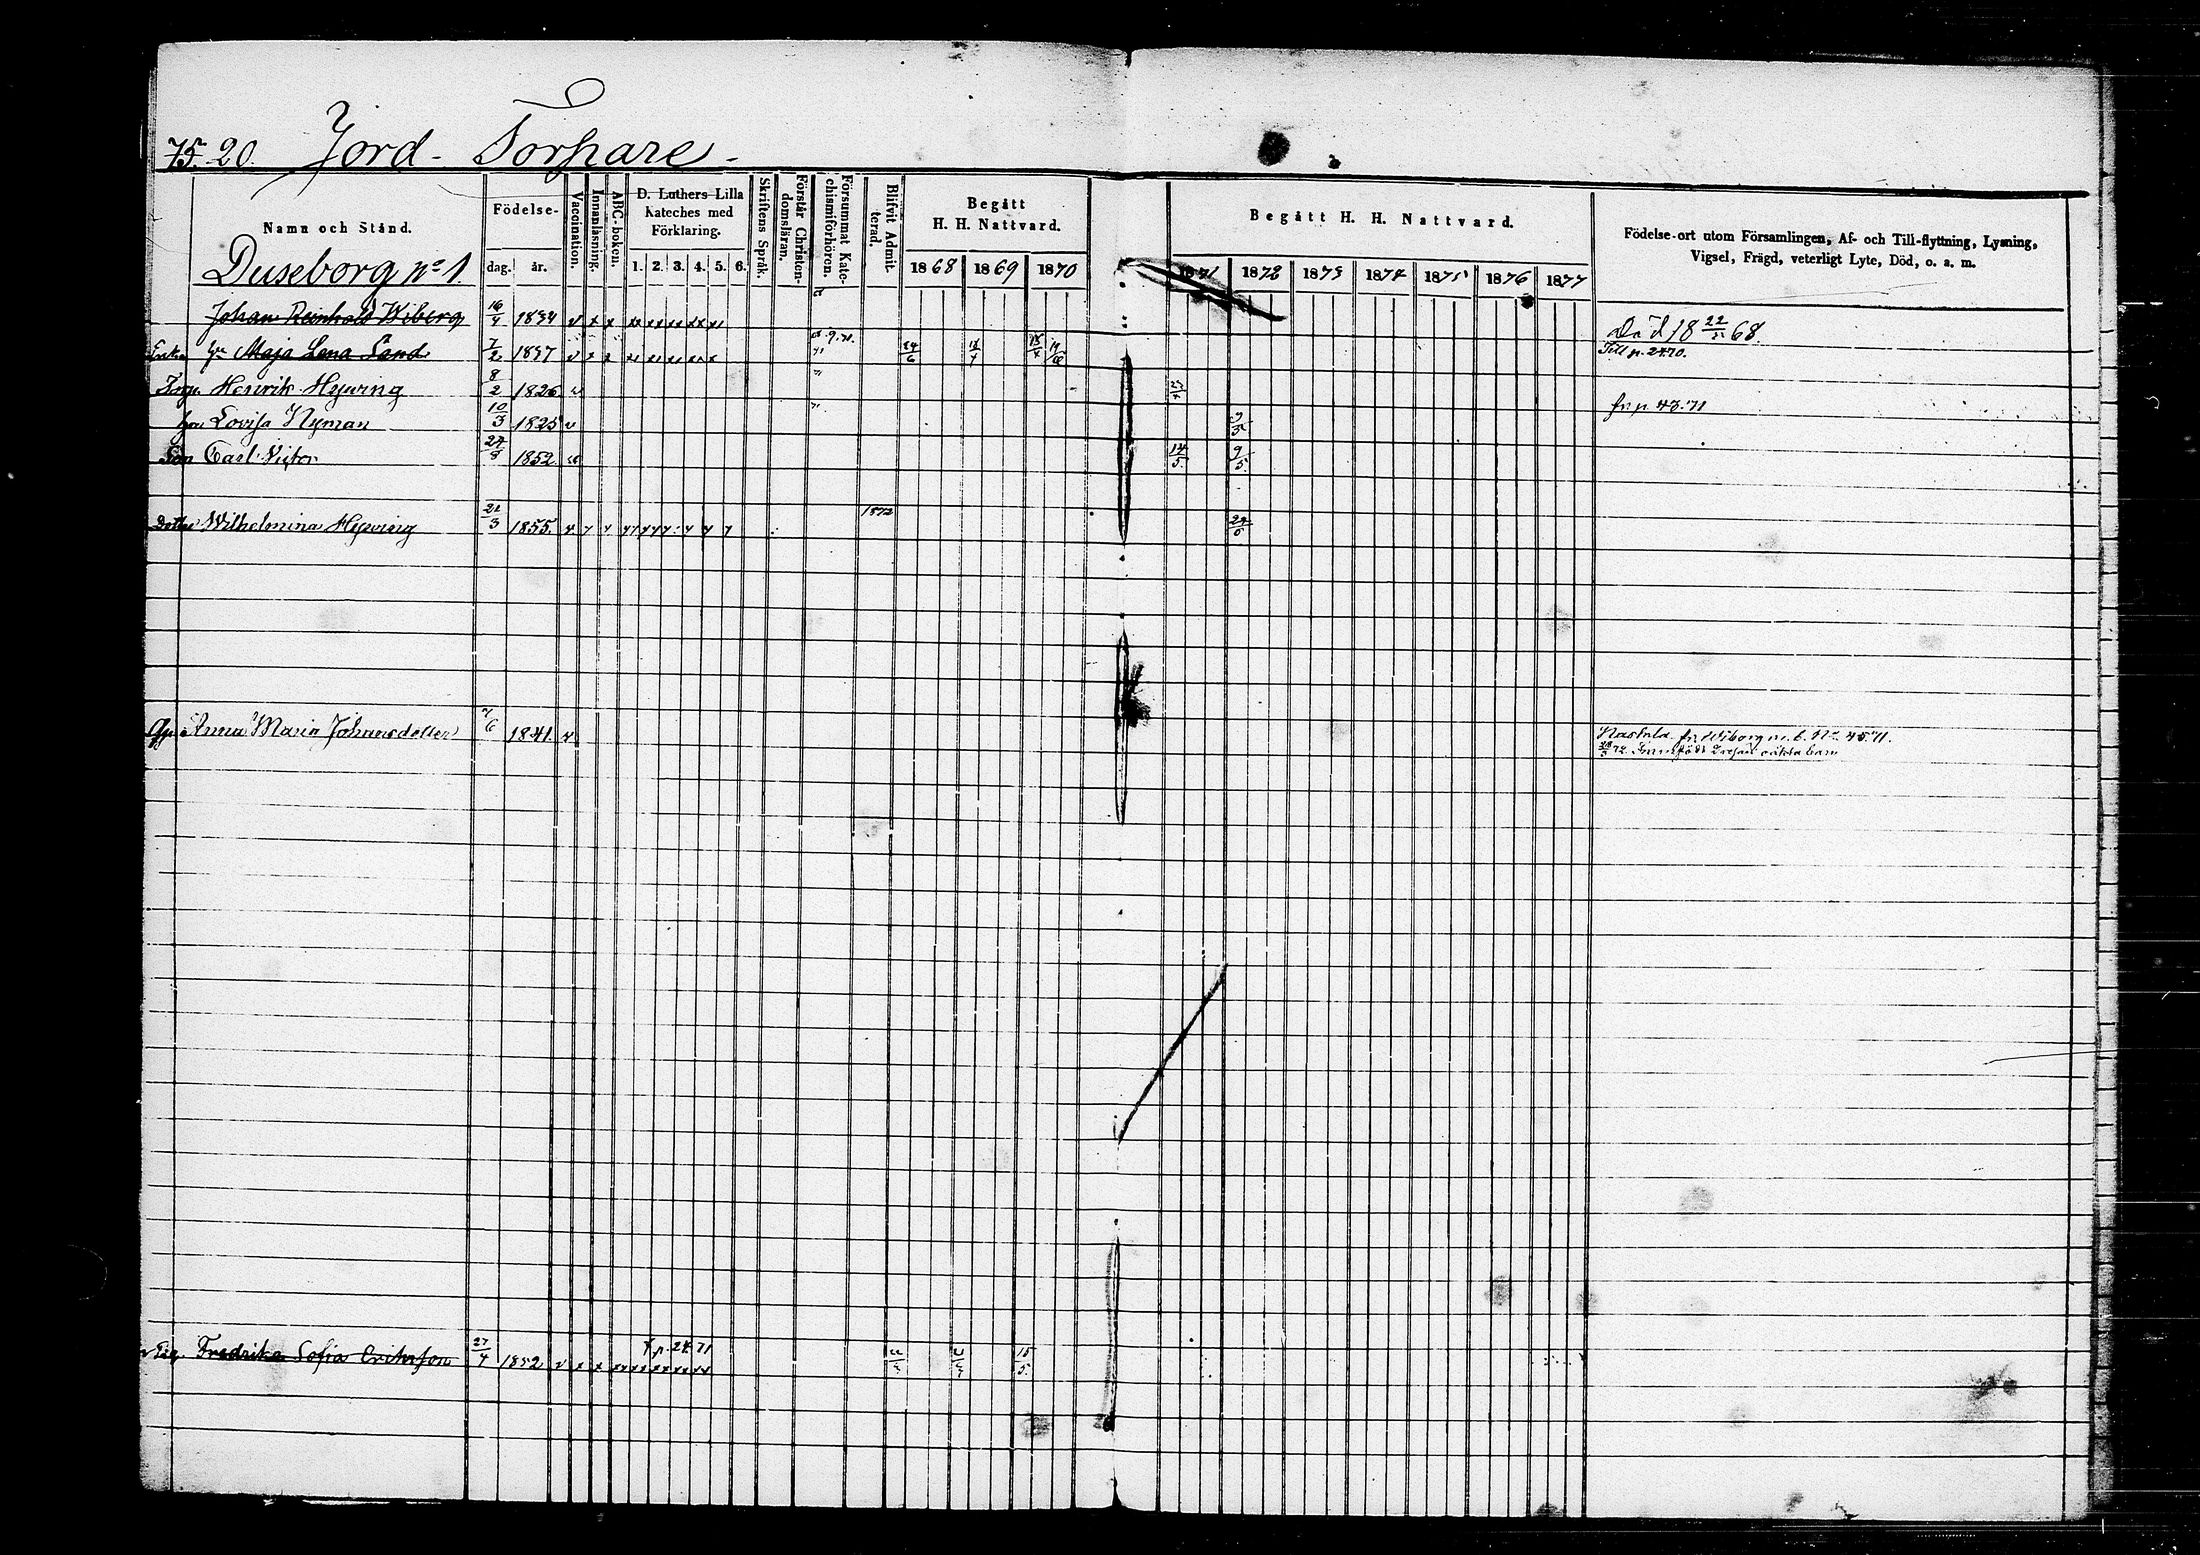 75. 20. Jord- Torpare-
Namn och Stånd.
Födelse-
dag. år.
Vaccination.
Innanläsning.
ABC-boken.
D. Luthers Lilla
Kateches med
Förklaring.
1. 2. 3. 4. 5. 6.
Skriftens Språk.
Förstår Christen-
domsläran.
Försummat Kate-
chismiförhören.
Blifvit Admit-
terad.
Begått
H. H. Nattvard.
1868 1869 1870
Begått H. H. Nattvard.
1871 1872 1873 1874 1875 1876 1877
Födelse-ort utom Församlingen, Af- och Till-flyttning, Lysning,
Vigsel, Frägd, veterligt Lyte, Död, o. a. m.
Duseborg no 1.
Johan Reinhold Wiberg 16/4 1834 Död 18 22/ 68.
Enkan Maja Lena Sand 7/2 1837 24/6 Till p. 24.70.
Henrik Hyvring 8/2 1826 fr. p. 43.71
Lovisa Nyman 10/3 1825 9/5
Son Carl Victor 24/8 1852 14/5 9/5
Dotter Wilhelmina Hyvring 21/3 1855 1872
Anna Maria Johansdotter /6 1841 Nastola fr. Wiborg m. b. No 45.71.
Fredrika Sofia Eriksson 27/4 1852 p 24 71 15/5